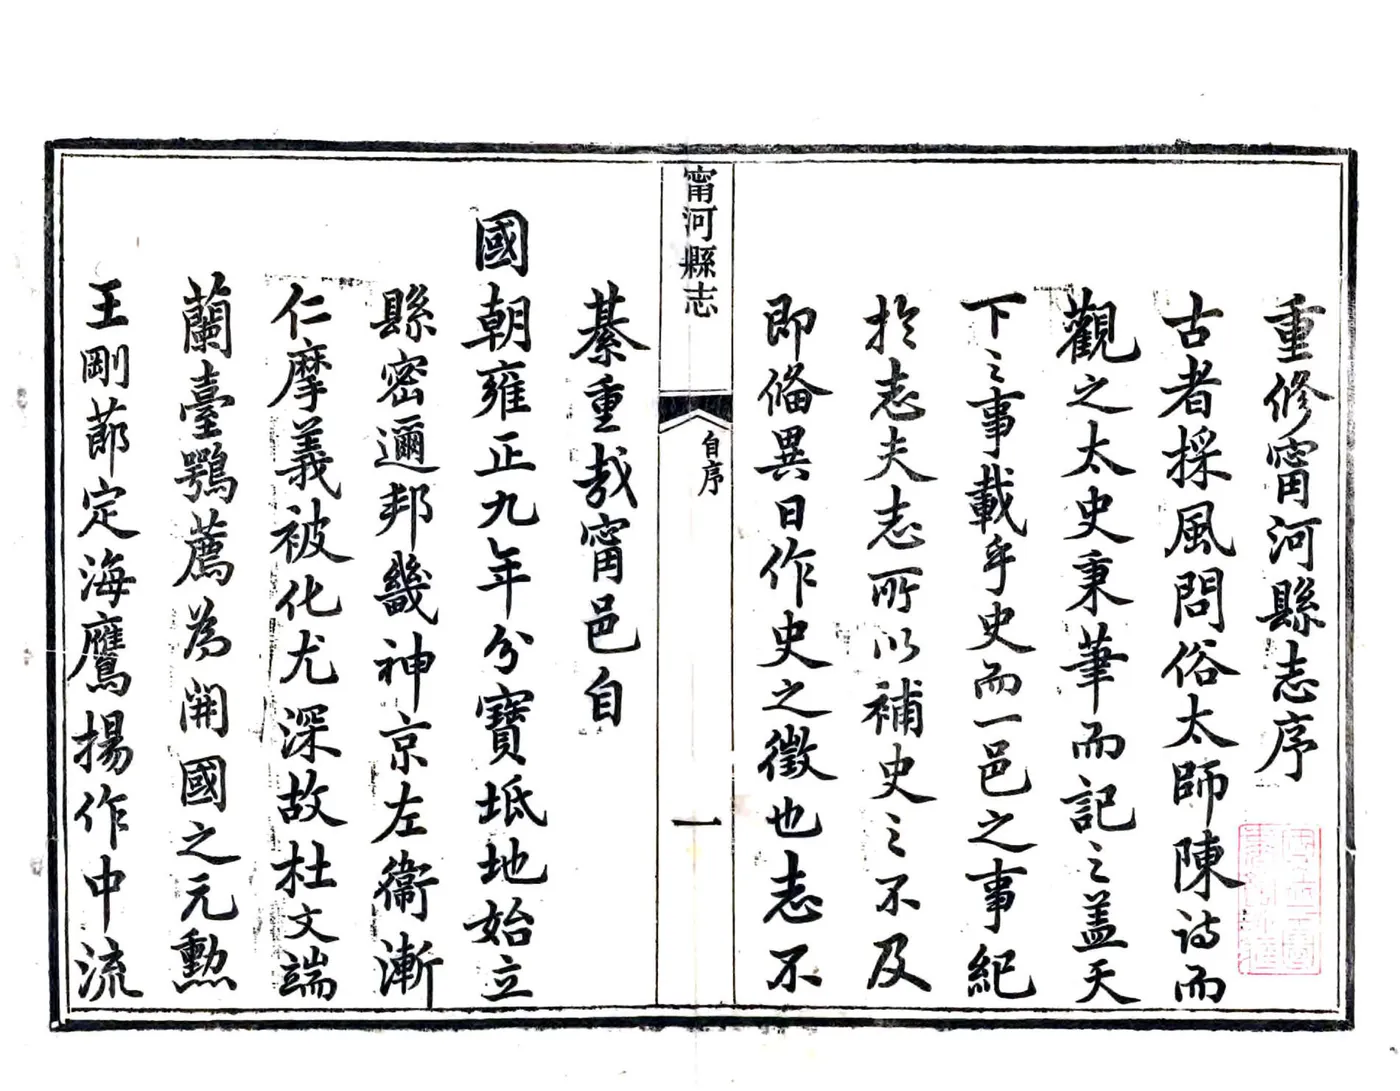 重修甯河縣志序
古者採風問俗太師陳詩而
觀之太史秉筆而記之盖天
下之事載乎史而一邑之事紀
於志夫志所以補史之不及
即俻異日作史之徵也志不
甯河縣志
自序
一
綦重哉甯邑自
國朝雍正九年分寶坻地始立
縣密邇邦畿神京左衞漸
仁摩義被化尤深故杜文端
蘭臺鶚薦為開國之元勲
王剛莭定海鷹揚作中流